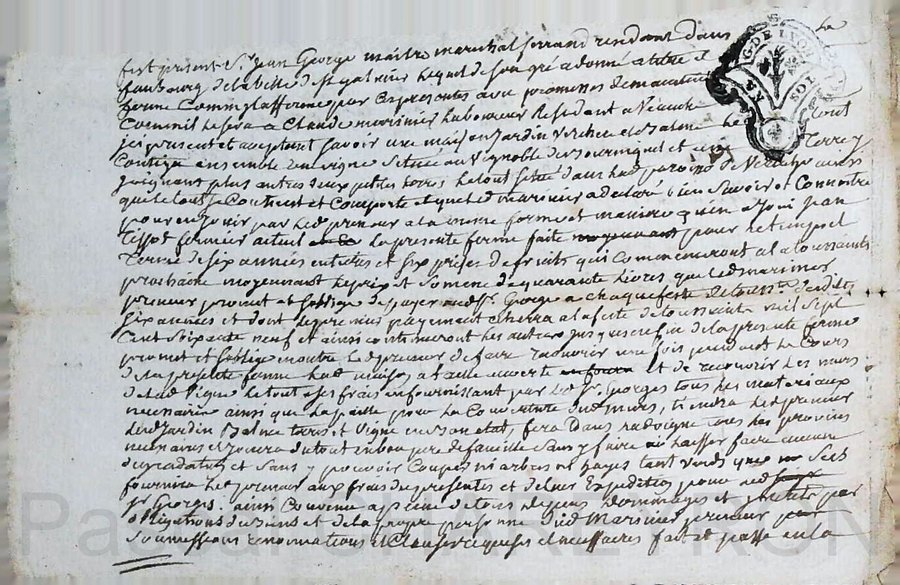 fust present Sr. Jean George maitre marechal ferrand resident dans Le
faubourg de la ville de St galmier Lequel de son gré a donné a titre de
ferme Comme il afferme par Ces presentes avec promesses de maintenir
a Claude marinier Laboureur Resident a Veauche
Icy present et aceptant savoir une maison Jardin Verchere et Balme Le tout
Contigu ensemble une vigne Située au Vignoble de et une Terre y
Joignant plus autres deux petites terres Le tout situé dans lad. paroisse de Veauche ainsi
que le tout Se Contient et Comporte et que led marinier a declaré bien Savoir et Connoitre
pour en Jouir par Led preneur a la meme forme et maniere qu'en a Joui Jean
Tissot fermier actuel La presente ferme faite moyennant pour Le temps et
Terme de Six années entieres et Six prises de fruits qui Commenceront a la toussaints
prochaine moyennant Le prix et Somme de quarante Livres que Led marinier
preneur promet et soblige de payer aud Sr. George a chaque feste de touss.ts desdites
Six années et dont Le premier payement Echerra a la feste de toussaints mil Sept
Cent Soixante neuf et ainsi continueront Les autres Jusques a fin de La presente ferme
promet et soblige en outre Led preneur de faire recouvrir une fois pendant Le Cours
de la presente ferme Lad. maison a et de recouvrir Les murs
de lad Vigne Le tout a ses frais en fournissant par Led Sr. Georges tous Les materiaux
necessaires ainsi que La paille pour La Couverture desd murs, tiendra Led preneur
Lesd Jardin Balme terres et Vigne en bon état, fera Dans lad vigne tous Les provins
necessaires et Jouira du tout en bon pere de famille Sans y faire ni Laisser faire aucune
degradations et Sans y pouvoir Couper ni arbres ni hayes tant verds que Secs
fournira Led preneur aux frais des presentes et de leur Expedition pour led
Sr Georges. ainsi Convenu a peine de tous depens dommages et interets par
obligations de Biens et de la propre personne dud Marinier preneur
Soumissions renonciations et Clauses requises et necessaires fait et passé en la
G. DE LYON
SOLS
Pa EYRON